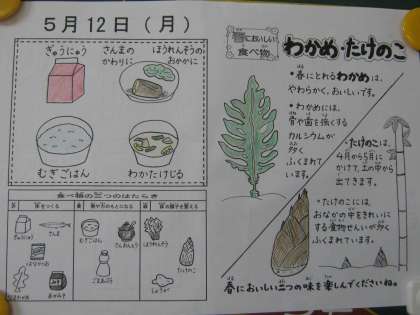 5月12日（月）
ぎゅうにゅう
さんまの
かわりに
ほうれんそうの
おかかに
むぎごはん
わかたけじる
食べ物の三つのはたらき
ぎゅうにゅう
さんま
むぎごはん
さんおんとう
ほうれんそう
たけのこ
ごまあぶら
しょうが
春においしい
食べ物
わかめ・たけのこ
・春にとれるわかめは、
やわらかく、おいしいです。
・わかめには、
骨や歯を強くする
カルシウムが
多く
ふくまれて
います。
・たけのこは、
4月から5月に
かけて、土の中から
出てきます。
・たけのこには、
おなかの中をきれいに
する食物せんいが多く
ふくまれています。
春においしい二つの味を楽しんでくださいね。